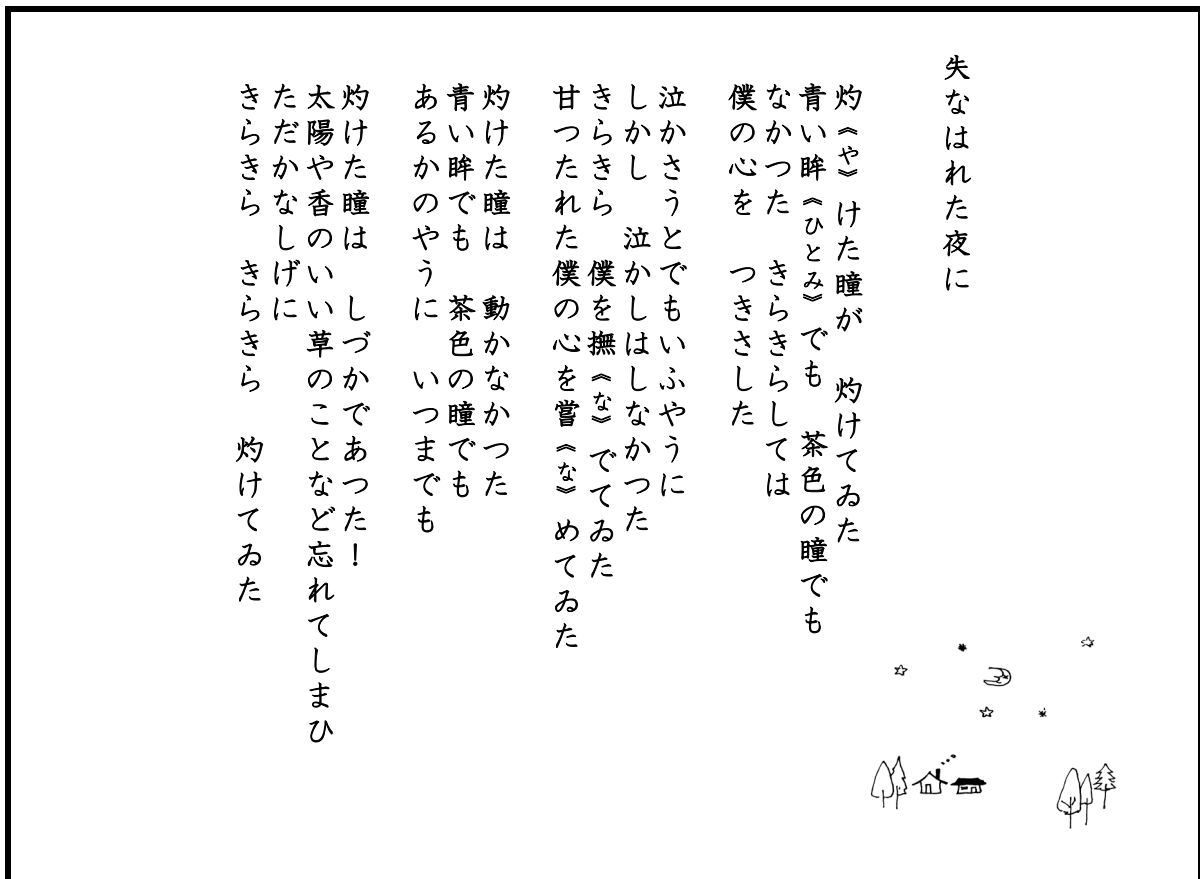 失なはれた夜に
灼《や》けた瞳が　灼けてゐた
青い眸《ひとみ》でも　茶色の瞳でも
なかつた　きらきらしては
僕の心を　つきさした
泣かさうとでもいふやうに
しかし　泣かしはしなかつた
きらきら　僕を撫《な》でてゐた
甘つたれた僕の心を嘗《な》めてゐた
灼けた瞳は　動かなかつた
青い眸でも　茶色の瞳でも
あるかのやうに　いつまでも
灼けた瞳は　しづかであつた！
太陽や香のいい草のことなど忘れてしまひ
ただかなしげに
きらきら　きらきら　灼けてゐた